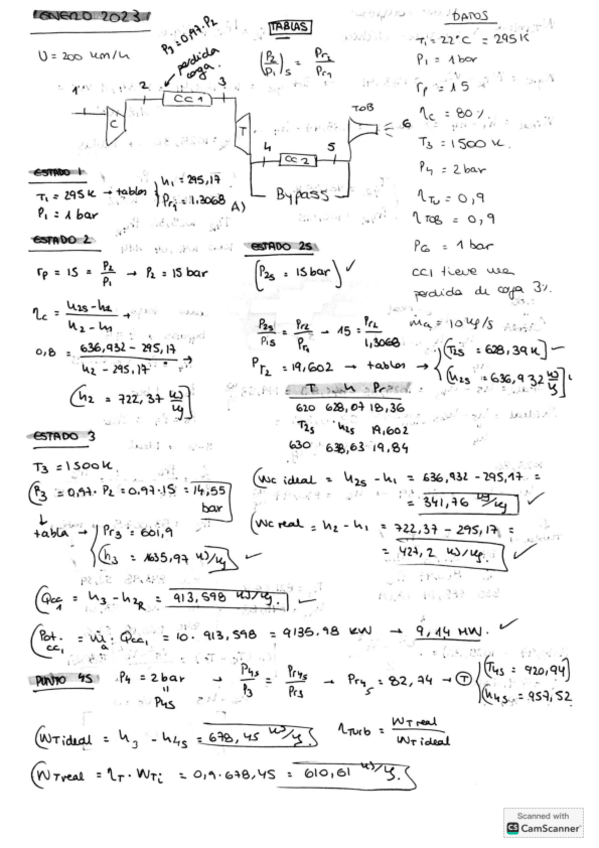 ENERO 2023
U = 200 km/h
P3 = 0,97·P2
perdida carga.
TABLAS
(P2/P1)s = Pr2/Pr1
DATOS
T1 = 22°C = 295K
P1 = 1 bar
rp = 15
ηc = 80%
T3 = 1500 K.
P4 = 2 bar
ηTU = 0,9
ηTOB = 0,9
P6 = 1 bar
CC1 tiene una
perdida de carga 3%
ṁa = 10 kg/s
1 2 3
C CC1 T
4 5
CC2
TOB 6
Bypass
ESTADO 1
T1 = 295K → tablas { h1 = 295,17
P1 = 1 bar Pr1 = 1,3068 A)
ESTADO 2
rp = 15 = P2/P1 → P2 = 15 bar
ηc = h2s - h1 / h2 - h1 →
0,8 = 636,932 - 295,17 / h2 - 295,17 →
(h2 = 722,37 kJ/kg
ESTADO 2s
(P2s = 15 bar) ✓
P2s/P1s = Pr2/Pr1 → 15 = Pr2/1,3068
Pr2 = 19,602 → tablas → { (T2s = 628,39K)
(h2s = 636,932 kJ/kg
T h Pr
620 628,07 18,36
T2s h2s 19,602
630 638,63 19,84
ESTADO 3
T3 = 1500K.
(P3 = 0,97·P2 = 0,97·15 = 14,55 bar
tabla → { Pr3 = 601,9
(h3 = 1635,97 kJ/kg ✓
(Wc ideal = h2s - h1 = 636,932 - 295,17 =
= 341,76 kJ/kg ✓
(Wc real = h2 - h1 = 722,37 - 295,17 =
= 427,2 kJ/kg. ✓
(Qcc1 = h3 - h2R = 913,598 kJ/kg. ✓
(Pot.cc1 = ṁa · Qcc1 = 10 · 913,598 = 9135,98 KW → 9,14 MW. ✓
PUNTO 4S P4 = 2 bar = P4s → P4s/P3 = Pr4s/Pr3 → Pr4s = 82,74 → T { (T4s = 920,94)
(h4s = 957,52
(WT ideal = h3 - h4s = 678,45 kJ/kg. ηTurb = WT real / WT ideal
(WT real = ηT · WTi = 0,9 · 678,45 = 610,61 kJ/kg.
Scanned with
CS CamScanner